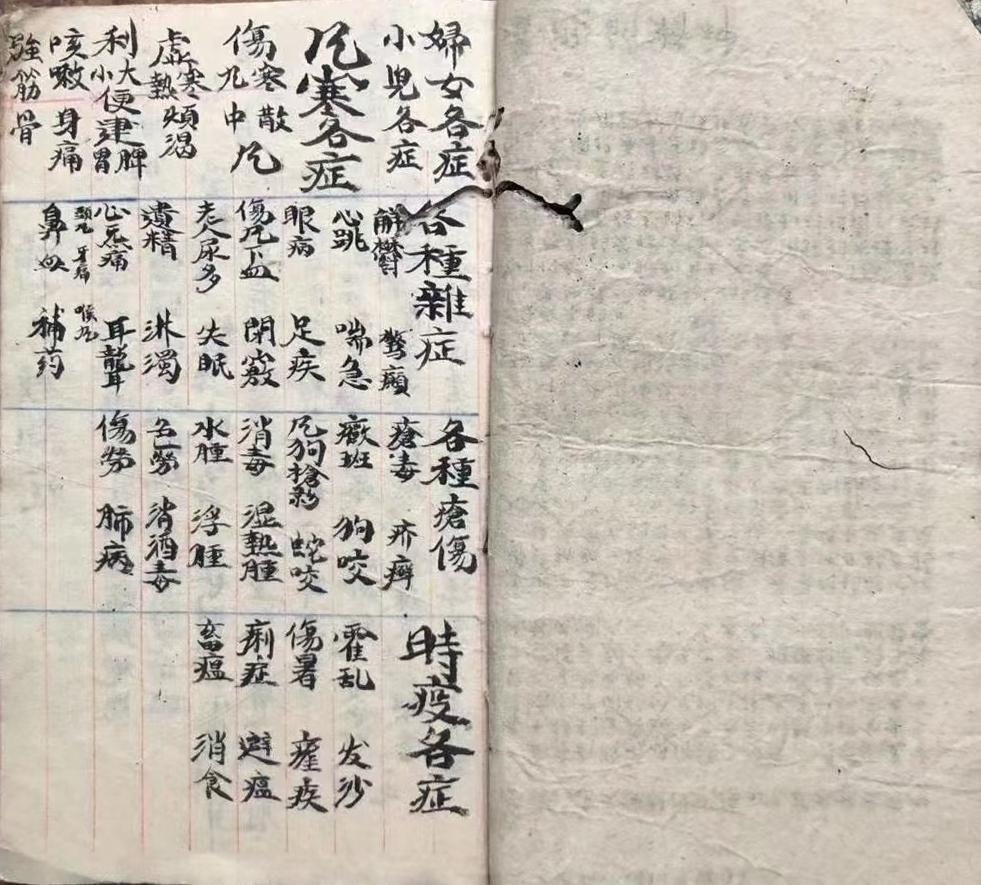 婦女各症
小兒各症
凨寒各症
傷寒散九中凨
虛寒熱煩渴
利大小便建脾胃
咳嗽 身痛
強筋骨
各種雜症
解鬱 驚癲
心跳 喘急
眼病 足疾
傷凨下血 閉竅
老人尿多 失眠
遺精 淋濁
心气痛 耳聾
牙痛
鼻血 補药
各種瘡傷
瘡毒 疥癬
班 狗咬
凨狗 蛇咬
消毒 湿熱腫
水腫 浮腫
五勞 消酒毒
傷勞 肺病
時疫各症
霍乱 发沙
傷暑 瘧疾
痢症 避瘟
畜瘟 消食